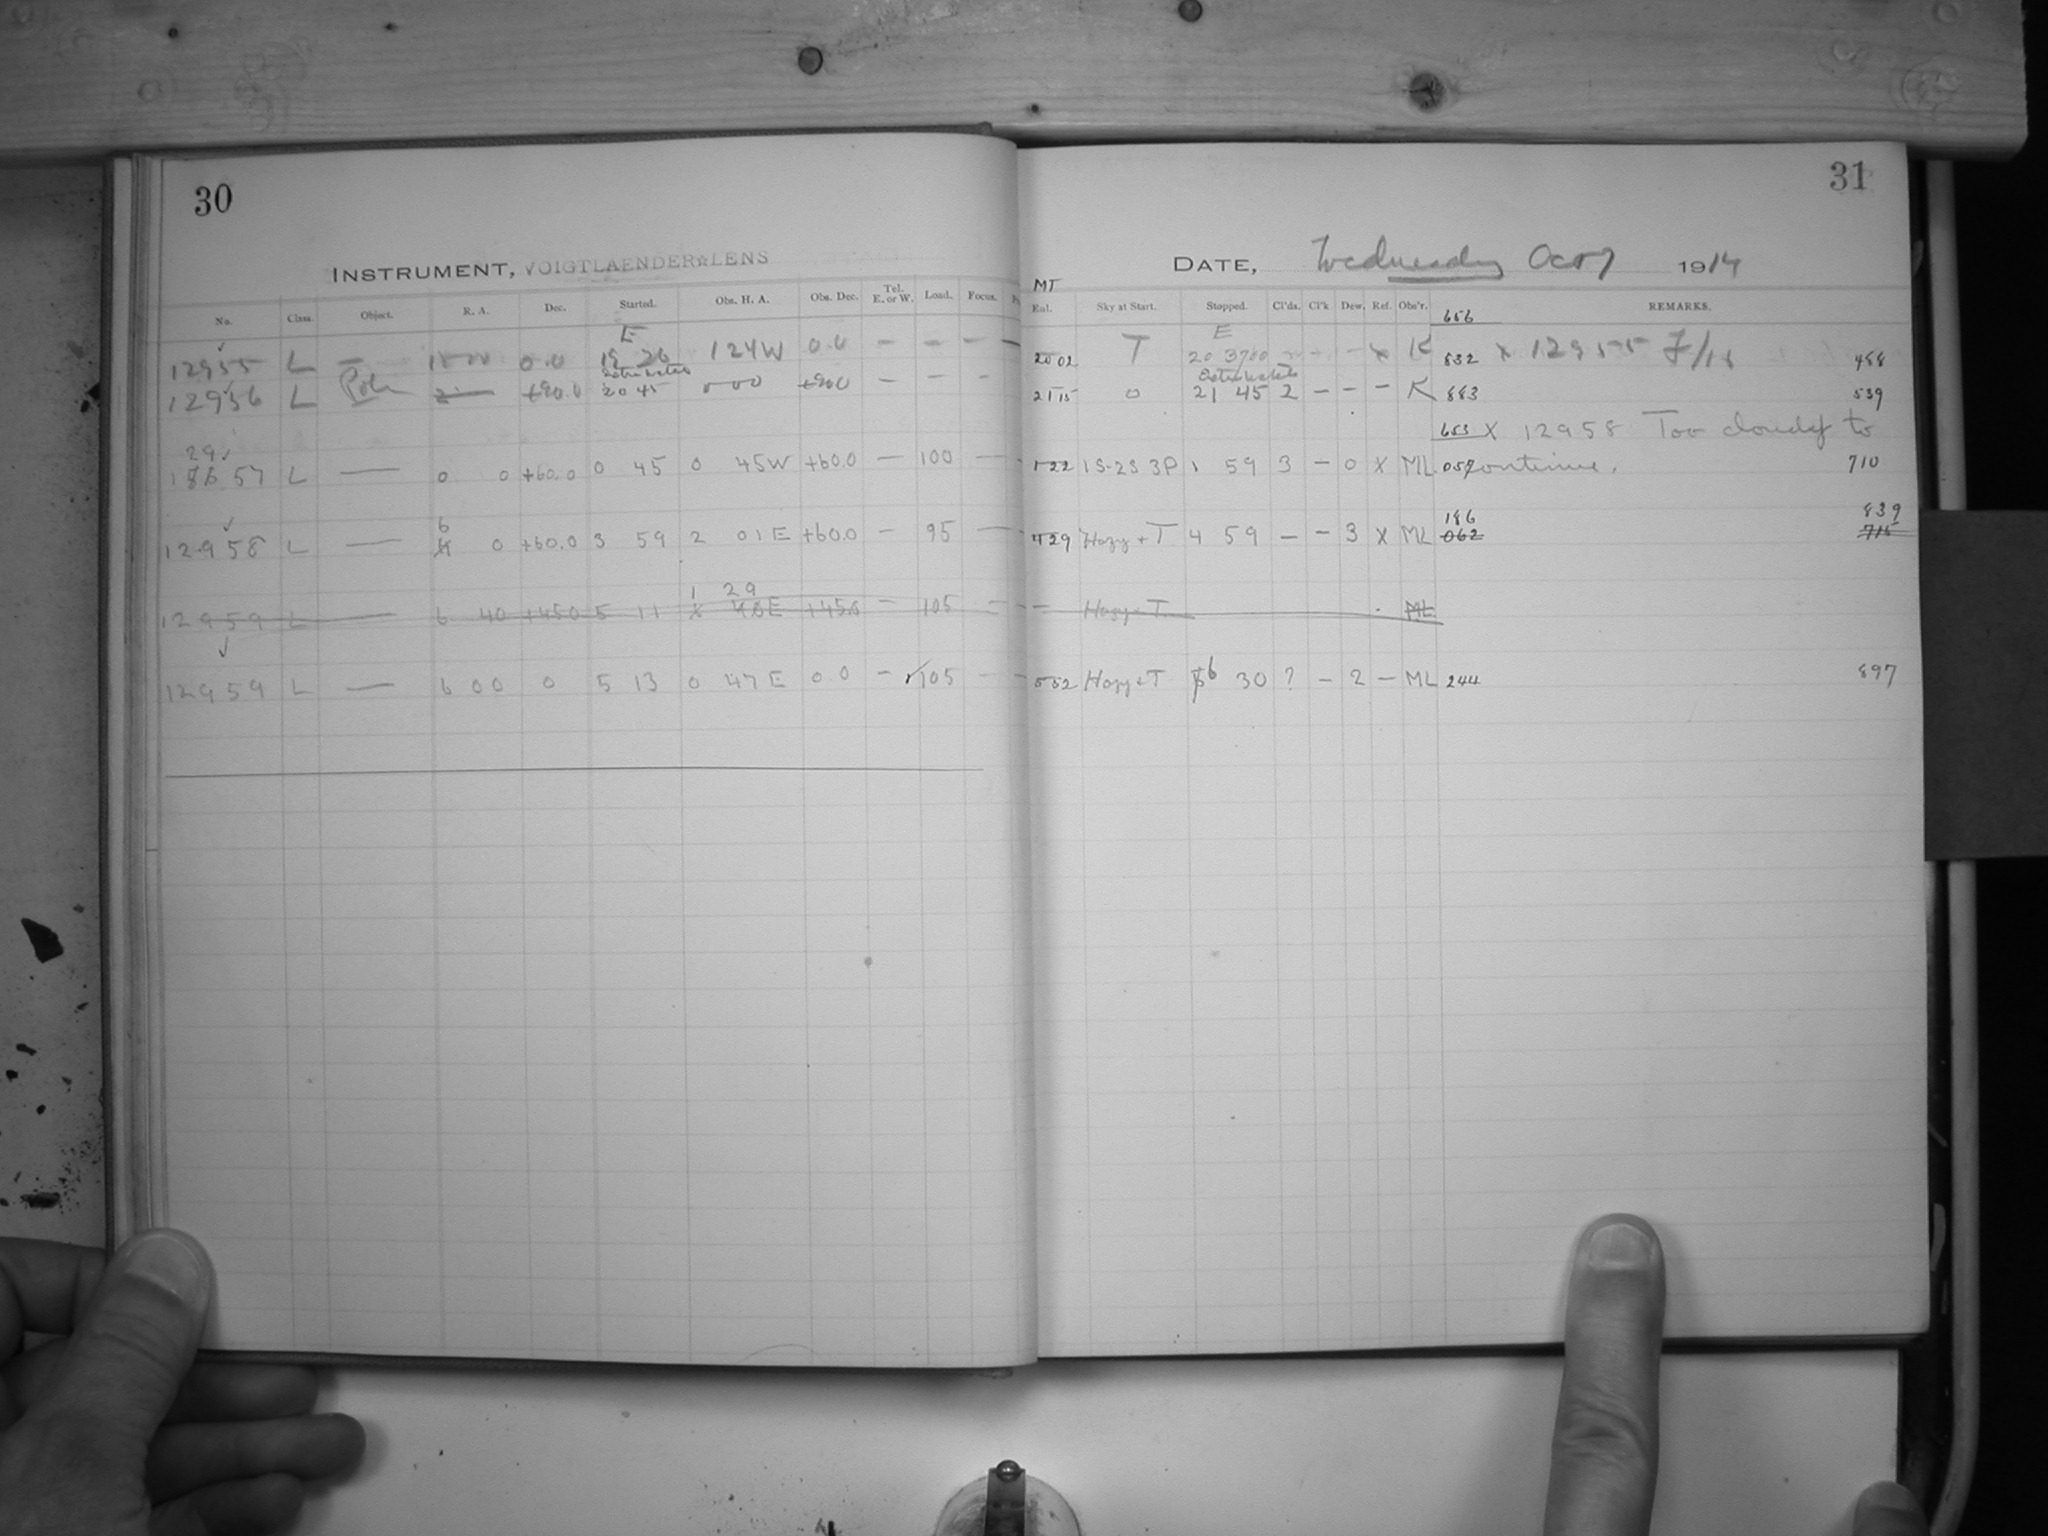 30
31
INSTRUMENT, VOIGTLAENDER LENS
DATE, Wednesday Oct 7 1914
No. Class. Object. R. A. Dec. Started. Obs. H. A. Obs. Dec. Tel. E. or W. Load. Focus.
MT
Eql. Sky at Start. Stopped. Cl'ds. Cl'k Dew. Ref. Obs'r. REMARKS.
656
E
E
12955 L — 0.0 19 26 124W 0.0 — — — —
2002 T 20 37 K 832 X 12955 F/
12956 L Pole +90.0 20 45 000 +90.0 — — —
2115 0 21 45 2 — — — K 883 539
653 X 12958 Too cloudy to
29
57 L — 0 0 +60.0 0 45 0 45W +60.0 — 100 —
122 1S-2S 3P 1 59 3 — 0 X ML 057 continue. 710
6
186 839
12958 L — 0 +60.0 3 59 2 01E +60.0 — 95 —
429 Hazy + T 4 59 — — 3 X ML 062 715
1 29
12959 L — 6 40 +45.0 5 11 E +45.0 — 105 —
— Hazy + T ML
12959 L — 6 00 0 5 13 0 47E 0.0 — 105 —
552 Hazy + T 6 30 ? — 2 — ML 244 897